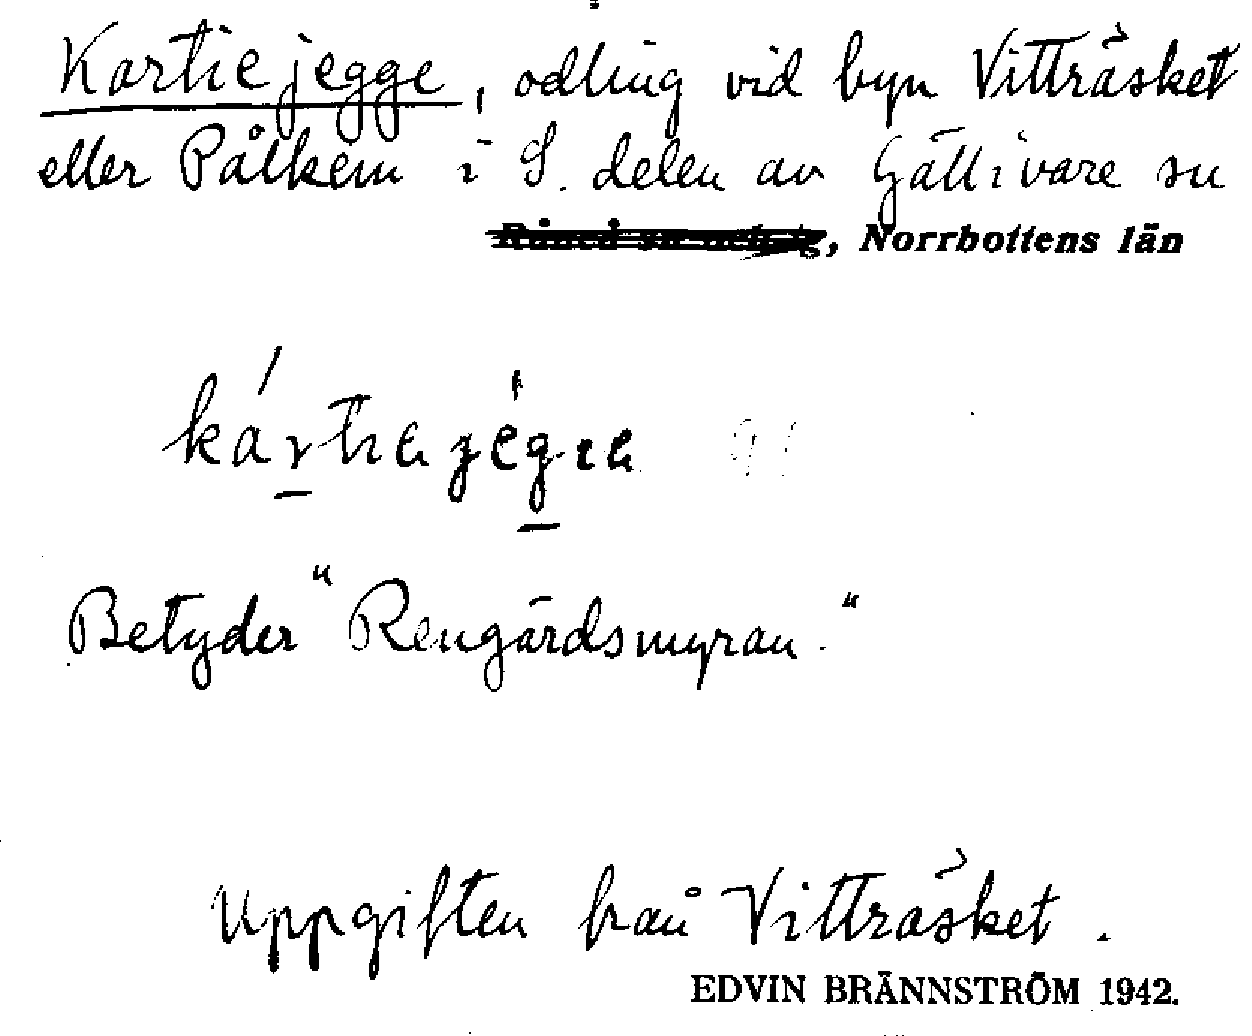 Kartiejegge, odling vid byn Vitträsket
eller Pålkem i S. delen av Gällivare sn
Råneå sn och tg, Norrbottens län
Betyder "Rengärdsmyran."
Uppgiften från Vitträsket.
EDVIN BRÄNNSTRÖM 1942.